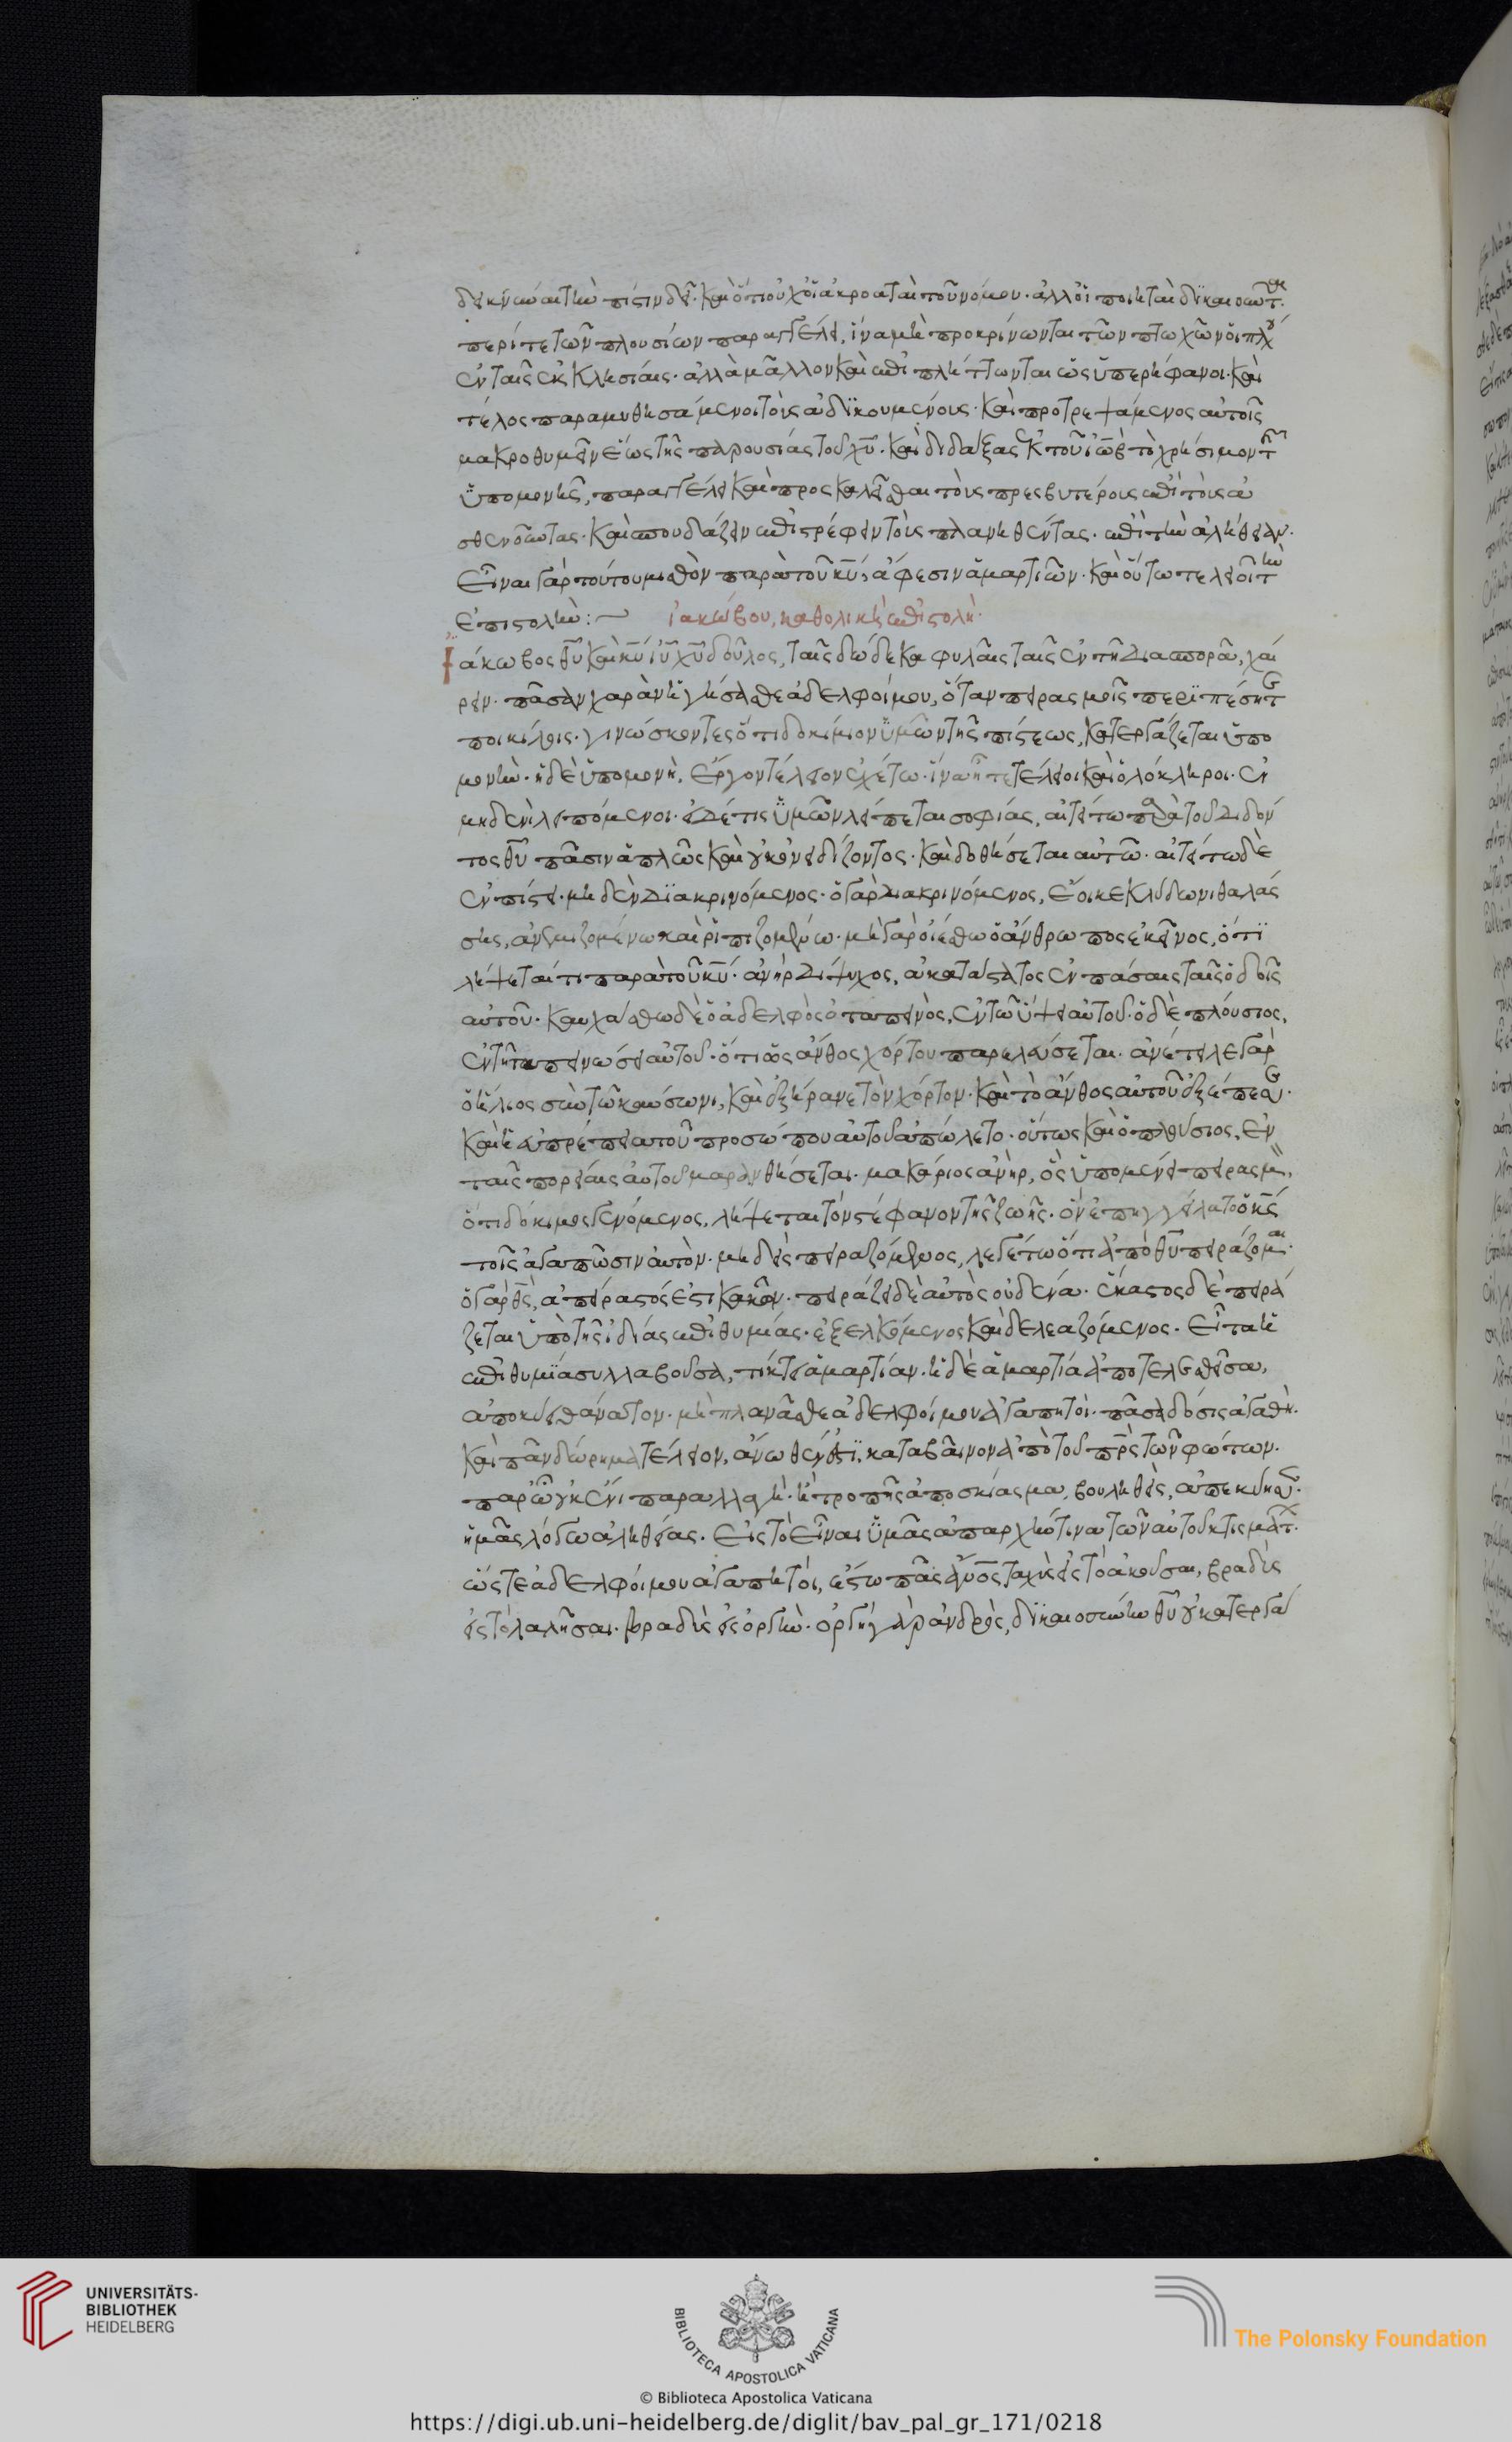 δεικνύων τὴν πίστιν δεῖ· καὶ ὅτι οὐχ οἱ ἀκροαταὶ τοῦ νόμου· ἀλλ' οἱ ποιηταὶ δικαιοῦντ(αι)·
περί τε τῶν πλουσίων παραγγέλει, ἵνα μὴ προκρίνωνται τῶν πτωχῶν οἱ πλού
ἐν ταῖς ἐκκλησίαις· ἀλλὰ μᾶλλον καὶ ἐπιπλήττωνται ὡς ὑπερήφανοι· καὶ
τέλος παραμυθησάμενοι τοὺς ἀδικουμένους· καὶ προτρεψάμενος αὐτοῖς
μακροθυμεῖν ἕως τῆς παρουσίας τοῦ χυ· καὶ διδάξας ἐκ τοῦ ἰὼβ τὸ χρήσιμον τῆς
ὑπομονῆς, παραγγέλει καὶ προσκαλεῖσθαι τοὺς πρεσβυτέρους ἐπὶ τοὺς ἀ
σθενοῦντας· καὶ σπουδάζειν ἐπιστρέφειν τοὺς πλανηθέντας· ἐπὶ τὴν ἀλήθειαν·
εἶναι γὰρ τούτου μισθὸν παρὰ τοῦ κυ, ἄφεσιν ἁμαρτιῶν· καὶ οὕτω τελειοῖ τὴν
ἐπιστολήν :~ ἰακώβου, καθολικὴ ἐπιστολή·
Ἰάκωβος θυ καὶ κυ ιυ χυ δοῦλος, ταῖς δώδεκα φυλαῖς ταῖς ἐν τῇ διασπορᾶ, χαί
ρειν· πᾶσαν χαρὰν ἡγήσασθε ἀδελφοί μου, ὅταν πειρασμοῖς περιπέσητε
ποικίλοις· γινώσκοντες ὅτι δοκίμιον ὑμῶν τῆς πίστεως, κατεργάζεται ὑπο
μονήν· ἡ δὲ ὑπομονὴ, ἔργον τέλειον ἐχέτω· ἵνα ἦτε τέλειοι καὶ ὁλόκληροι· ἐν
μηδενὶ λειπόμενοι· εἰ δέ τις ὑμῶν λείπεται σοφίας, αἰτείτω παρὰ τοῦ διδόν
τος θυ πᾶσιν ἁπλῶς καὶ οὐκ ὀνειδίζοντος· καὶ δοθήσεται αὐτῶ· αἰτείτω δὲ
ἐν πίστει· μηδὲν διακρινόμενος· ὁ γὰρ διακρινόμενος, ἔοικε κλύδωνι θαλάσ
σης, ἀνεμιζομένω καὶ ῥιπιζομένω· μὴ γὰρ οἰέσθω ὁ ἄνθρωπος ἐκεῖνος, ὅτι
λήψεταί τι παρὰ τοῦ κυ· ἀνὴρ δίψυχος, ἀκατάστατος ἐν πάσαις ταῖς ὁδοῖς
αὐτοῦ· καυχάσθω δὲ ὁ ἀδελφὸς ὁ ταπεινὸς, ἐν τῶ ὕψει αὐτοῦ· ὁ δὲ πλούσιος,
ἐν τῆ ταπεινώσει αὐτοῦ· ὅτι ὡς ἄνθος χόρτου παρελεύσεται· ἀνέτειλε γὰρ
ὁ ἥλιος σὺν τῶ καύσωνι, καὶ ἐξήρανε τὸν χόρτον· καὶ τὸ ἄνθος αὐτοῦ ἐξέπεσε·
καὶ ἡ εὐπρέπεια τοῦ προσώπου αὐτοῦ ἀπώλετο· οὕτως καὶ ὁ πλούσιος, ἐν
ταῖς πορείαις αὐτοῦ μαρανθήσεται· μακάριος ἀνὴρ, ὃς ὑπομένει πειρασμ(όν),
ὅτι δόκιμος γενόμενος, λήψεται τὸν στέφανον τῆς ζωῆς· ὃν ἐπηγγείλατο ὁ κς
τοῖς ἀγαπῶσιν αὐτόν· μηδεὶς πειραζόμενος, λεγέτω ὅτι ἀπὸ θυ πειράζομαι·
ὁ γὰρ θς, ἀπείραστός ἐστι κακῶν· πειράζει δὲ αὐτὸς οὐδένα· ἕκαστος δὲ πειρά
ζεται ὑπὸ τῆς ἰδίας ἐπιθυμίας· ἐξελκόμενος καὶ δελεαζόμενος· εἶτα ἡ
ἐπιθυμία συλλαβοῦσα, τίκτει ἁμαρτίαν· ἡ δὲ ἁμαρτία ἀποτελεσθεῖσα,
ἀποκύει θάνατον· μὴ πλανᾶσθε ἀδελφοί μου ἀγαπητοί· πᾶσα δόσις ἀγαθὴ·
καὶ πᾶν δώρημα τέλειον, ἄνωθέν ἐστι, καταβαῖνον ἀπὸ τοῦ πρς τῶν φώτων·
παρ' ὧ οὐκ ἔνι παραλλαγὴ· ἢ τροπῆς ἀποσκίασμα, βουληθεὶς, ἀπεκύησεν
ἡμᾶς λόγω ἀληθείας· εἰς τὸ εἶναι ὑμᾶς ἀπαρχήν τινα τῶν αὐτοῦ κτισμάτ(ων)·
ὥστε ἀδελφοί μου ἀγαπητοί, ἔστω πᾶς ἄνος ταχὺς εἰς τὸ ἀκοῦσαι, βραδὺς
εἰς τὸ λαλῆσαι· βραδὺς εἰς ὀργήν· ὀργὴ γὰρ ἀνδρὸς, δικαιοσύνην θυ οὐ κατεργά
UNIVERSITÄTS-
BIBLIOTHEK
HEIDELBERG
BIBLIOTECA APOSTOLICA VATICANA
The Polonsky Foundation
© Biblioteca Apostolica Vaticana
https://digi.ub.uni-heidelberg.de/diglit/bav_pal_gr_171/0218